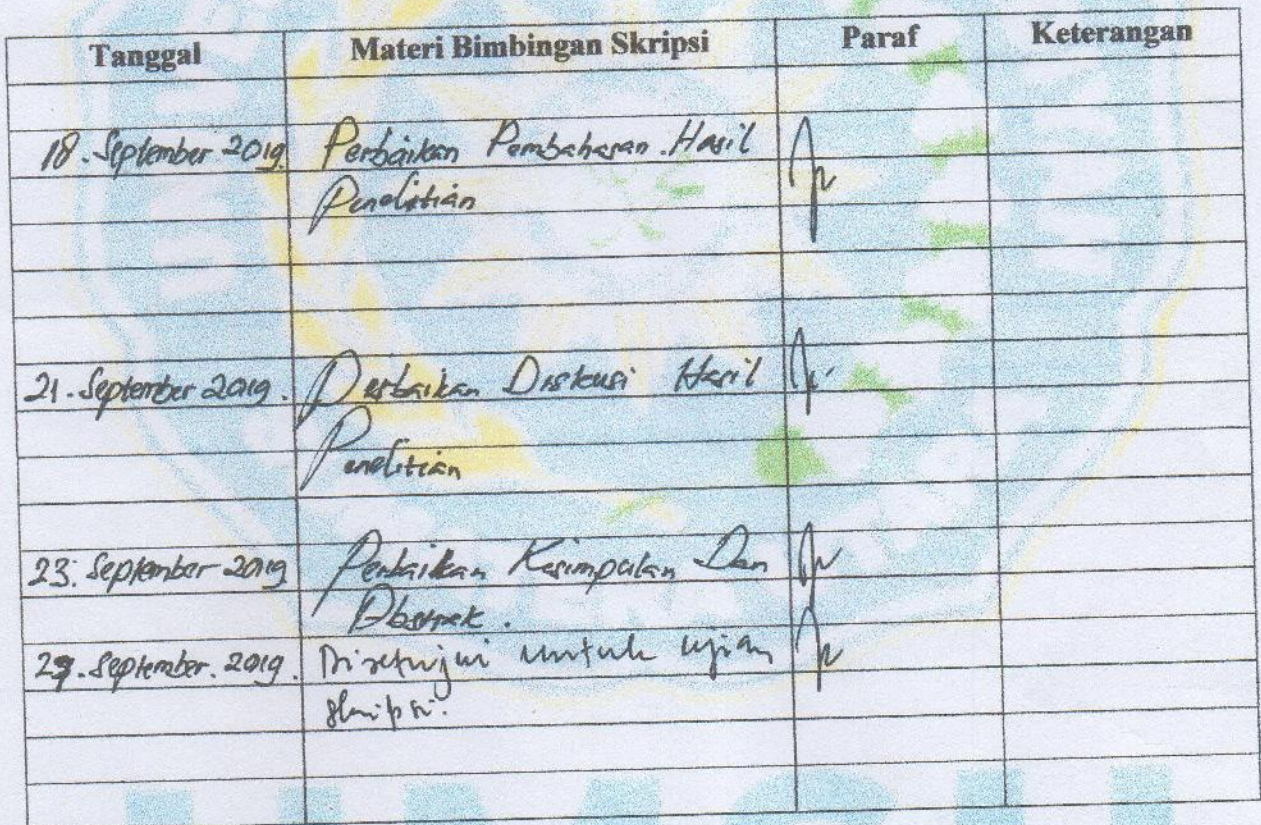 Tanggal Materi Bimbingan Skripsi Paraf Keterangan
18. September 2019 Perbaikan Pembahasan Hasil
Penelitian
21. September 2019. Perbaikan Diskusi Hasil
Penelitian
23. September 2019 Perbaikan Kesimpulan Dan
Abstrak.
September. 2019. Disetujui untuk ujian
skripsi.